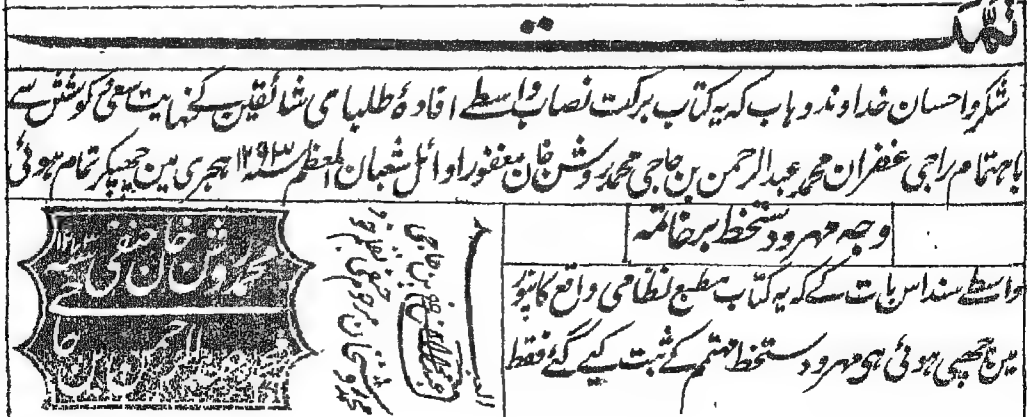 تمت
شکر و احسان خداوند وہاب کہ یہ کتاب برکت نصاب واسطے افادۂ طلبا می شائقین کے نہایت سعی و کوشش سے
باہتمام راجی غفران محمد عبدالرحمن بن حاجی محمد روشن خان مغفور اوائل شعبان المعظم سنہ ۱۲۹۳ ہجری مین چھپکر تمام ہوئی
وجہ مہر و دستخط بر خاتمہ
واسطے سند اس بات کے کہ یہ کتاب مطبع نظامی واقع کانپور
مین چھپی ہوئی ہی مہر و دستخط مہتمم کے ثبت کیے گئے فقط
محمد روشن خان حنفی